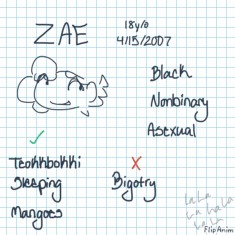 ZAE
18y/o
4/15/2007
Black
Nonbinary
Asexual
Teokkbokki
Sleeping
Mangoes
Bigotry
La La
La La La
La La
FlipAnim